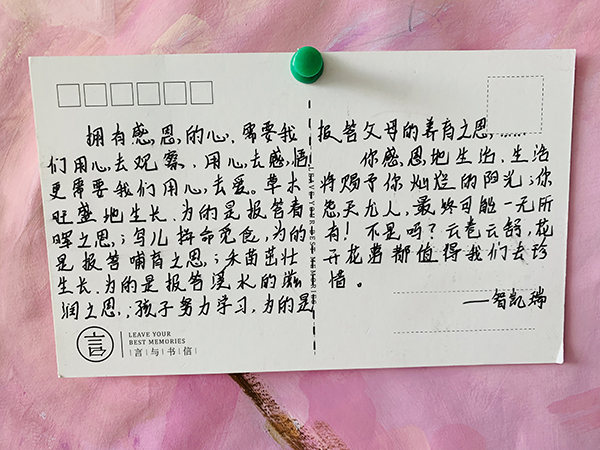 拥有感恩的心,需要我
们用心去观察、用心去感悟
更需要我们用心去爱。草木
旺盛地生长、为的是报答春
晖之恩;鸟儿拚命觅食,为的
是报答哺育之恩;禾苗茁壮
生长、为的是报答溪水的滋
润之恩;孩子努力学习,为的是
报答父母的养育之恩,……
你感恩地生活、生活
将赐予你灿烂的阳光;你
怨天尤人,最终可能一无所
有!不是吗?云卷云舒,花
开花落都值得我们去珍
惜。
——智凯瑞
言
LEAVE YOUR
BEST MEMORIES
言与书信